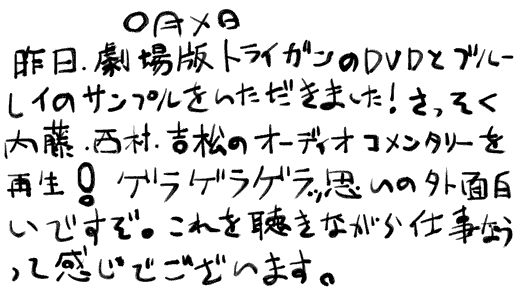 〇月×日
昨日、劇場版トライガンのDVDとブルー
レイのサンプルをいただきました!さっそく
内藤、西村、吉松のオーディオコメンタリーを
再生!ゲラゲラゲラッ思いの外面白
いですぞ。これを聴きながら仕事なう
って感じでございます。